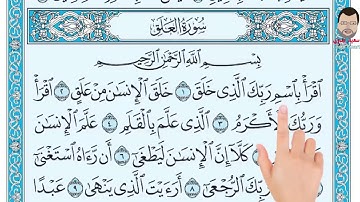 سُورَةُ الْعَلَقِ
بِسْمِ اللَّهِ الرَّحْمَٰنِ الرَّحِيمِ
اقْرَأْ بِاسْمِ رَبِّكَ الَّذِي خَلَقَ ١ خَلَقَ الْإِنسَانَ مِنْ عَلَقٍ ٢ اقْرَأْ
وَرَبُّكَ الْأَكْرَمُ ٣ الَّذِي عَلَّمَ بِالْقَلَمِ ٤ عَلَّمَ الْإِنسَانَ
كَلَّا إِنَّ الْإِنسَانَ لَيَطْغَىٰ ٦ أَن رَّآهُ اسْتَغْنَىٰ
رَبِّكَ الرُّجْعَىٰ ٨ أَرَأَيْتَ الَّذِي يَنْهَىٰ ٩ عَبْدًا